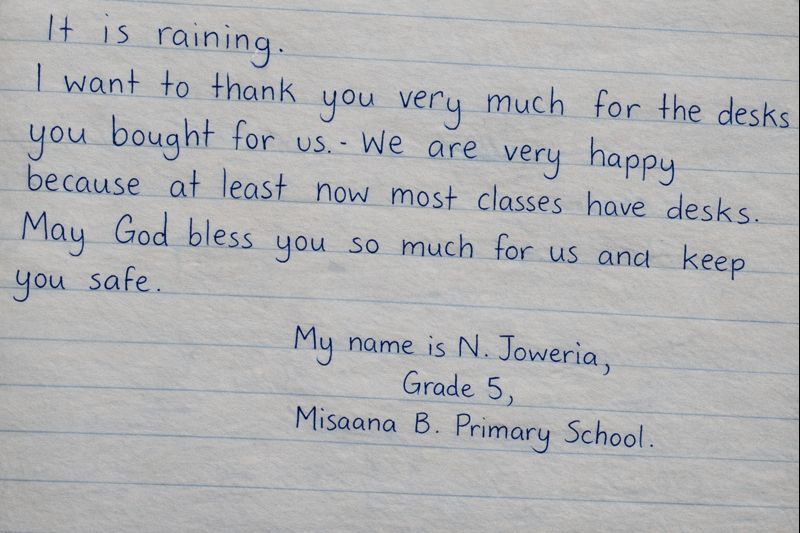 It is raining.
I want to thank you very much for the desks
you bought for us.- We are very happy
because at least now most classes have desks.
May God bless you so much for us and keep
you safe.
My name is N. Joweria,
Grade 5,
Misaana B. Primary School.